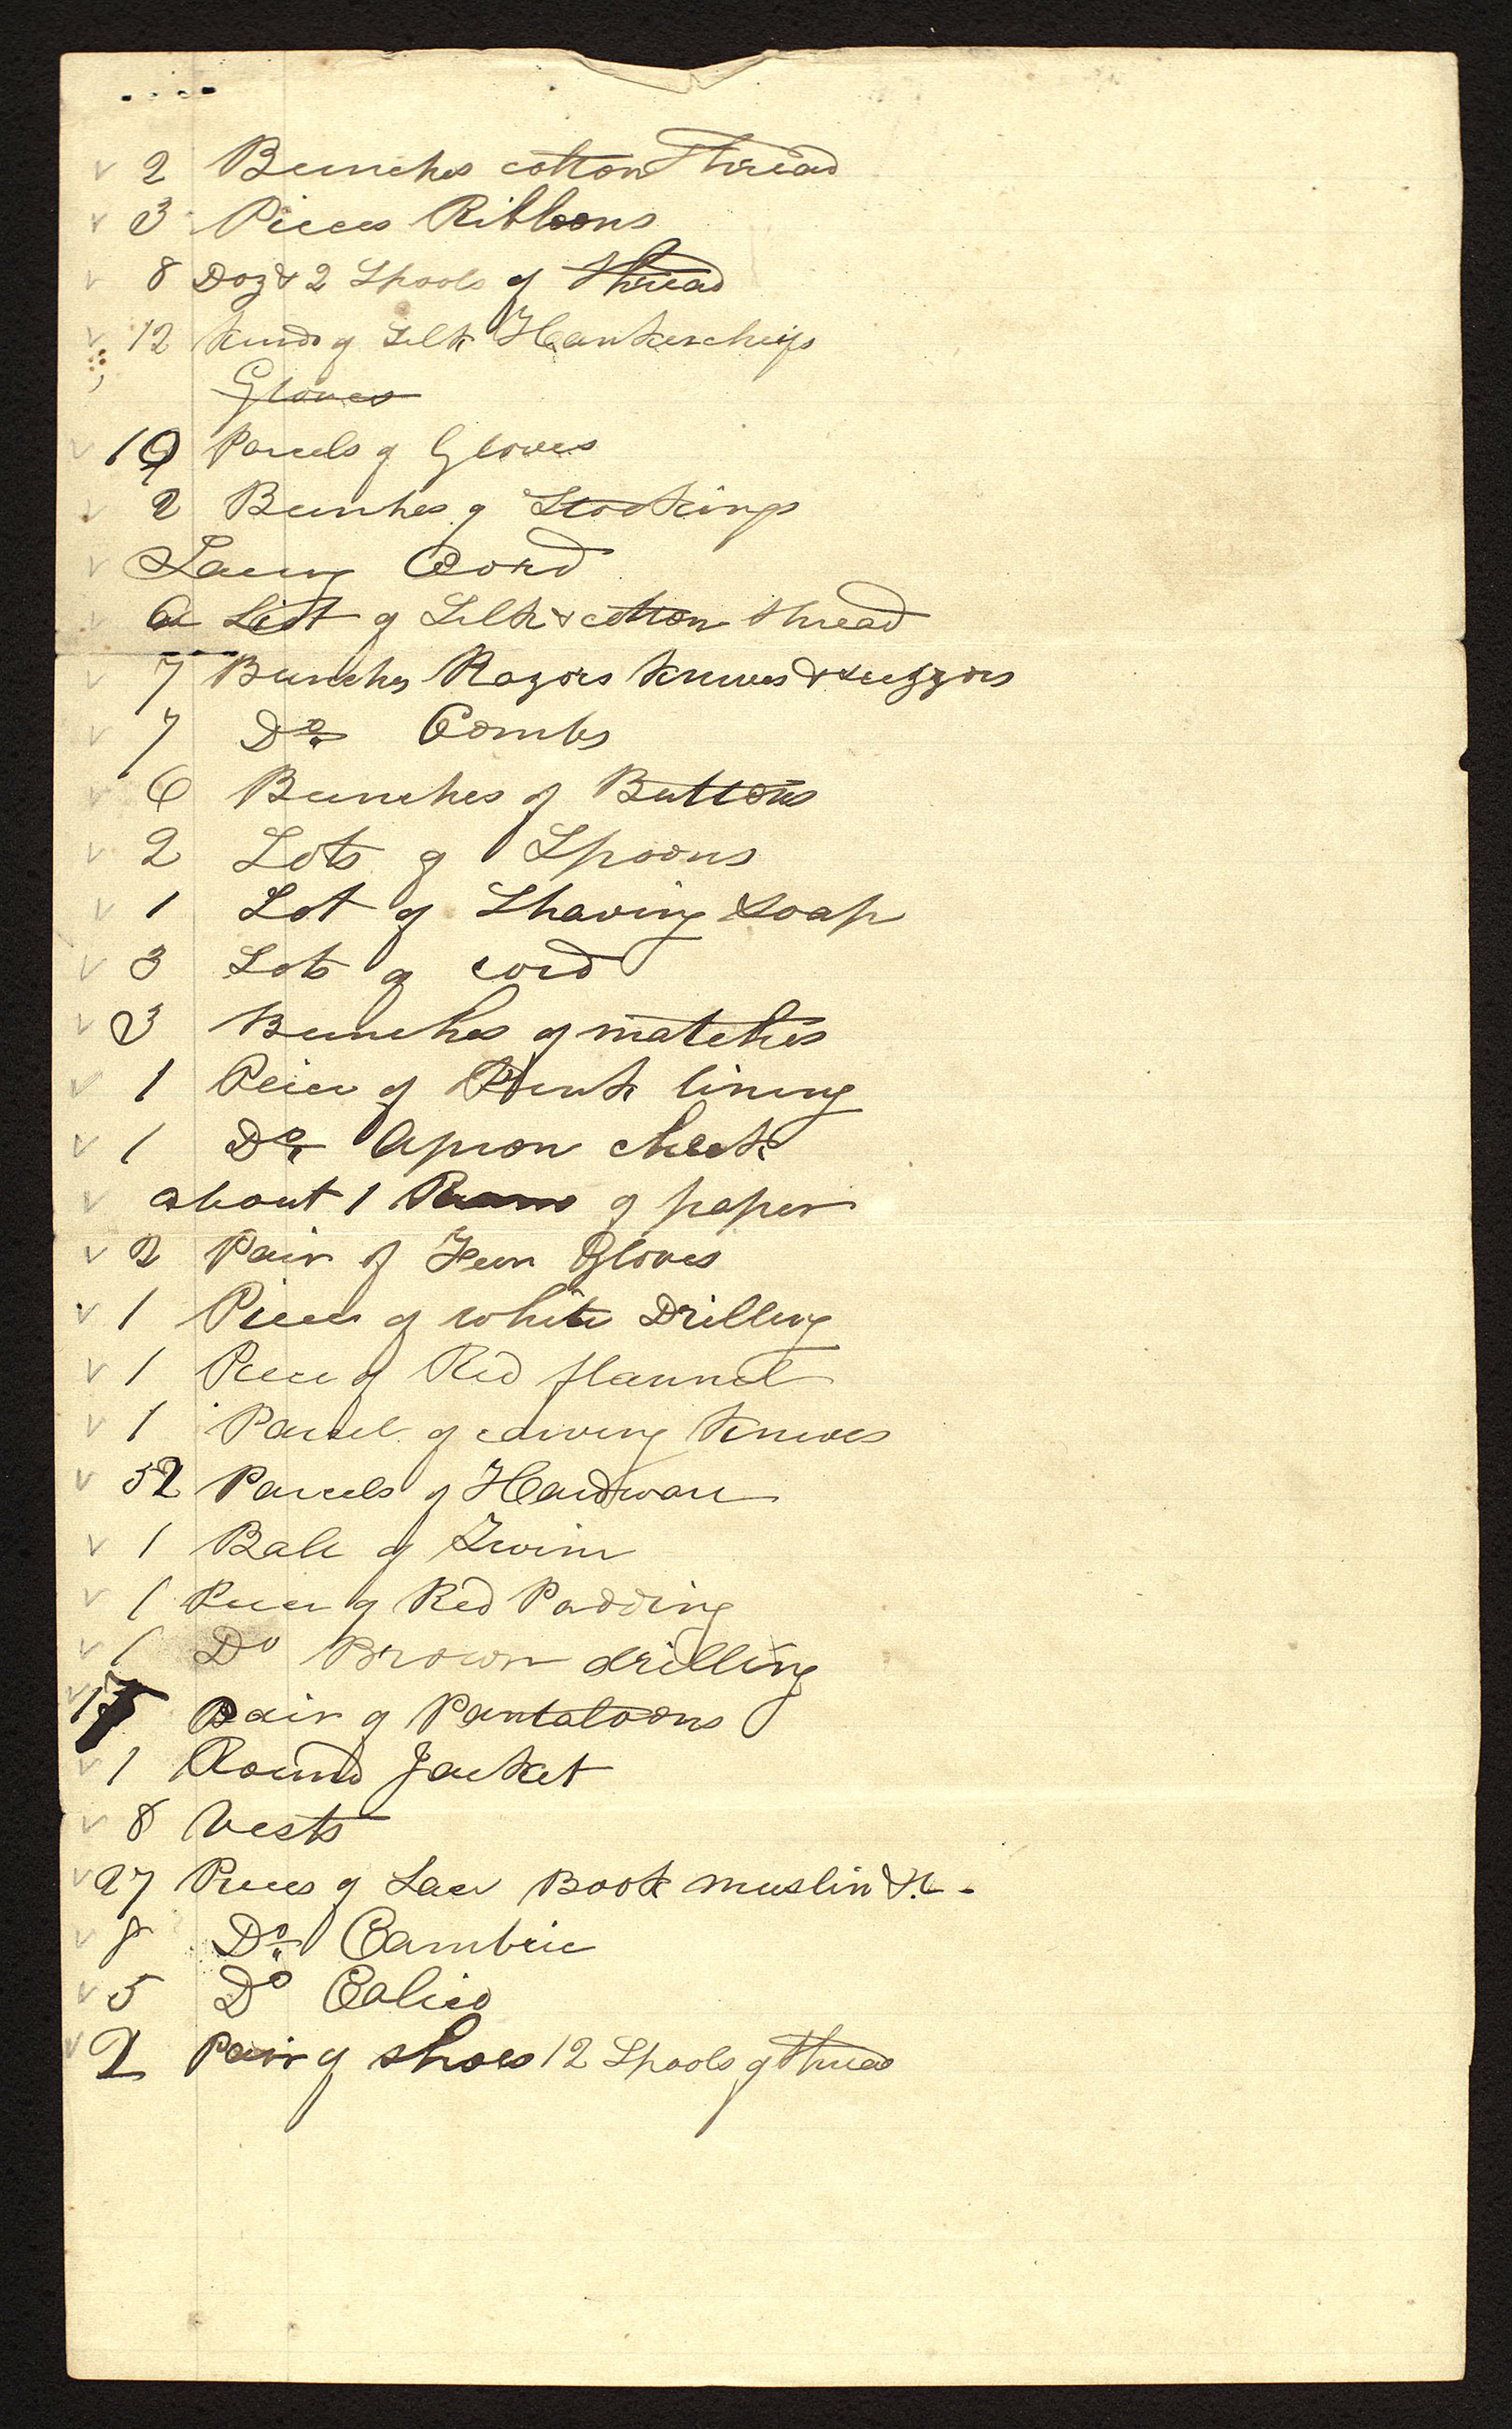 2 Bunches cotton Thread
3 Pieces Ribbons
8 Doz & 2 Spools of thread
12 kinds of Silk Hankerchiefs
Gloves
19 Parcels of Gloves
2 Bunhes of Stockings
Lacing Cord
a Lot of Silk & cotton thread
7 Bunches Razors knives & suzzors
7 Do Combs
6 Bunches of Buttons
2 Lots of Spoons
1 Lot of Shaving soap
3 Lots of cord
3 Bunches of matches
1 Peice of lining
1 Do Apron check
about 1 Ream of paper
2 Pair of Gloves
1 Piece of white Drilling
1 Piece of Red flannel
1 Parcel of carving knives
52 Parcels of Hardware
1 Ball of Twine
1 Piece of Red Padding
1 Do Brown drilling
17 Pair of Pantaloons
1 Round Jacket
8 Vests
27 Pieces of Lace Book muslin &c -
8 Do Cambric
5 Do Calico
2 Pair of shoes 12 Spools of thread